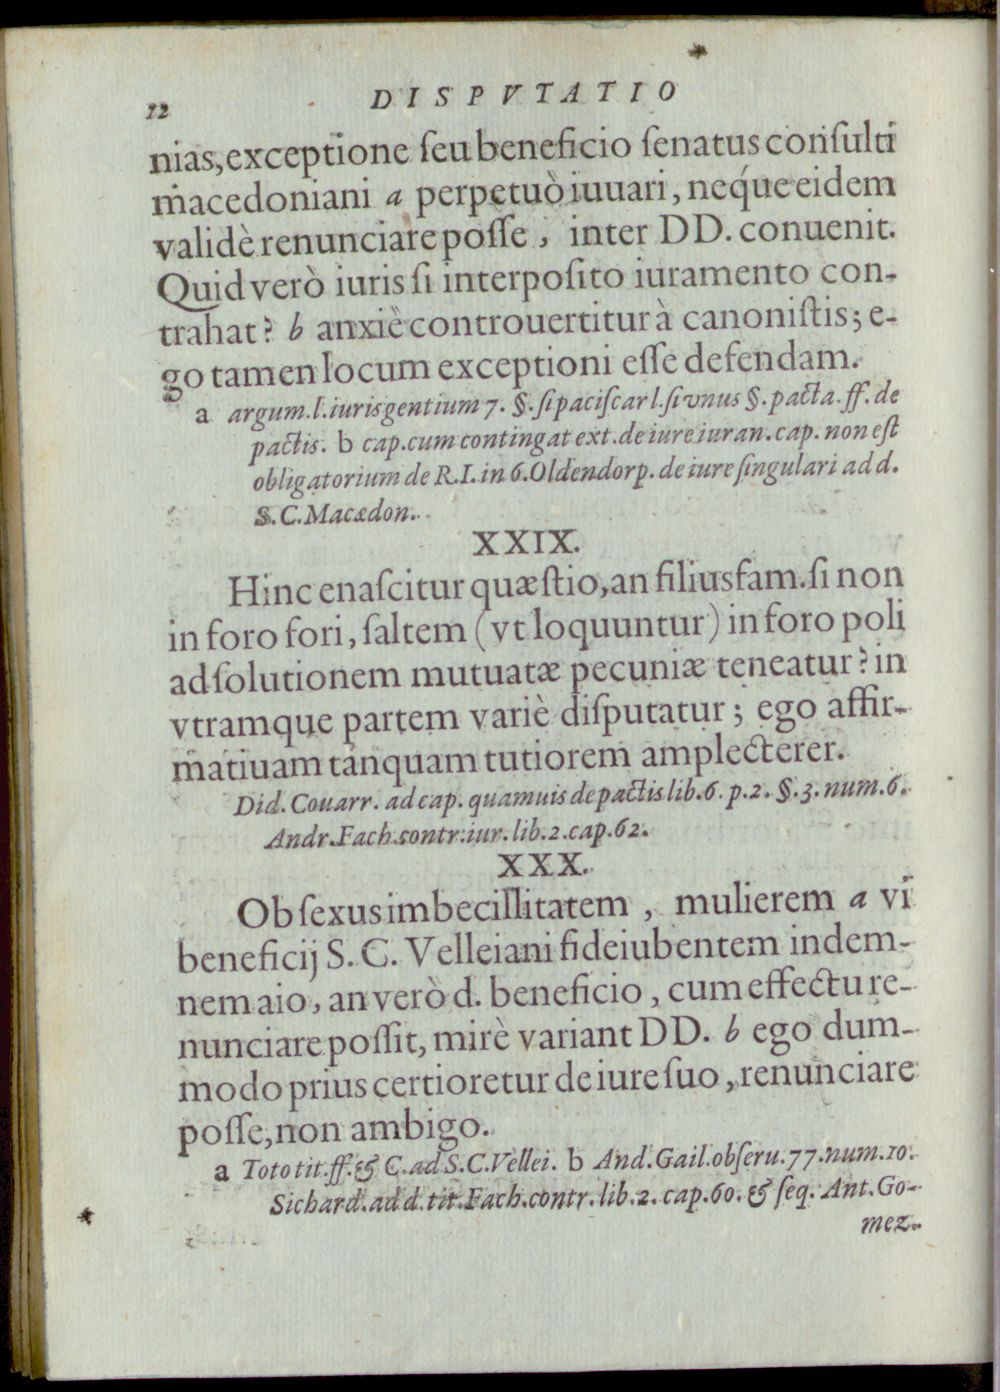 12 DISPVTATIO
nias, exceptione ſeu beneficio ſenatus conſulti
macedoniani a perpetuò iuuari, neq́ue eidem
validè renunciare poſſe, inter DD. conuenit.
Quid verò iuris ſi interpoſito iuramento con-
trahat? b anxiè controuertitur à canoniſtis; e-
go tamen locum exceptioni eſſe defendam.
a argum. l. iurisgentium 7. §. ſi paciſcar l. ſi vnus §. pacta. ff. de
pactis. b cap. cum contingat ext. de iure iuran. cap. non eſt
obligatorium de R.I. in 6. Oldendorp. de iure ſingulari ad d.
S.C. Macædon.
XXIX.
Hinc enaſcitur quæſtio, an filiusfam. ſi non
in foro fori, ſaltem (vt loquuntur) in foro poli
ad ſolutionem mutuatæ pecuniæ teneatur? in
vtramque partem variè diſputatur; ego affir-
matiuam tanquam tutiorem amplecterer.
Did. Couarr. ad cap. quamuis de pactis lib. 6. p. 2. §. 3. num. 6.
Andr. Fach. contr. iur. lib. 2. cap. 62.
XXX.
Ob ſexus imbecillitatem, mulierem a vi
beneficij S. C. Velleiani fideiubentem indem-
nem aio, an verò d. beneficio, cum effectu re-
nunciare poſſit, mirè variant DD. b ego dum-
modo prius certioretur de iure ſuo, renunciare
poſſe, non ambigo.
a Toto tit. ff. & C. ad S.C. Vellei. b And. Gail. obſeru. 77. num. 10.
Sichard. ad d. tit. Fach. contr. lib. 2. cap. 60. & ſeq. Ant. Go-
mez.